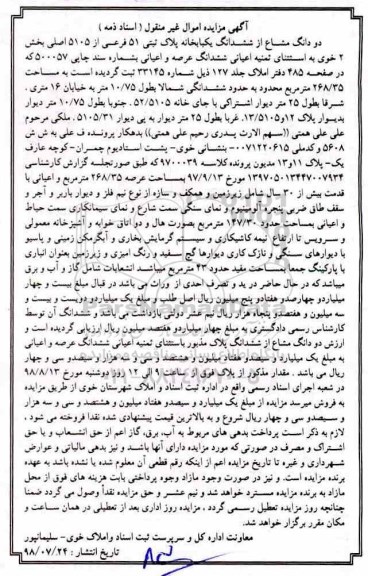 آگهی مزایده اموال غیر منقول ( اسناد ذمه )
دو دانگ مشاع از ششدانگ یکبابخانه پلاک ثبتی ۵۱ فرعی از ۵۱۰۵ اصلی بخش
۲ خوی به استثنای ثمنیه اعیانی ششدانگ عرصه و اعیانی بشماره سند چاپی ۵۰۰۰۵۷ که
در صفحه ۴۸۵ دفتر املاک جلد ۱۲۷ ذیل شماره ۳۳۱۴۵ ثبت گردیده است به مساحت
۲۶۸/۳۵ مترمربع محدود به حدود ششدانگی شمالا بطول ۱۰/۷۵ متر به خیابان ۱۶ متری .
شرقا بطول ۲۵ متر دیوار اشتراکی با جای خانه ۵۲/۵۱۰۵ . جنوبا بطول ۱۰/۷۵ متر دیوار
بدیوار پلاک ۱۲/۵۱۰۵و۱۳. غربا بطول ۲۵ متر دیوار به پی دیوار ۵۱۰۵/۳۱ . ملکی مرحوم
علی علی همتی ((سهم الارث پدری رحیم علی همتی)) بدهکار پرونده ف علی به ش ش
۵۶۰۸ و کدملی ۰۰۷۱۲۲۰۶۱۵ -بنشانی خوی- پشت استادیوم چمران- کوچه عارف
یک- پلاک ۱۱و۱۳ مدیون پرونده کلاسه ۹۷۰۰۰۳۹ که طبق صورتجلسه گزارش کارشناسی
۱۳۹۷۰۵۰۱۳۴۴۷۰۰۷۹۳۴ مورخ ۹۷/۹/۱۳ بمساحت عرصه ۲۶۸/۳۵ مترمربع و اعیانی با
قدمت بیش از ۳۰ سال شامل زیرزمین و همکف ، سازه از نوع نیم فلز و دیوار باربر و آجر و
سقف طاق ضربی پنجره آلومنیوم و نمای سنگی سمت شارع و نمای سیمانکاری سمت حیاط
و اعیانی بمساحت حدود ۱۴۷/۳۰ مترمربع بصورت هال و دو اتاق خوابه و آشپزخانه معمولی
و سرویس تا ارتفاع نیمه کاشیکاری و سیستم گرمایش بخاری و آبگرمکن زمینی و پاسیو
با دیوارهای سنگی و نازک کاری دیوارها گچ سفید و رنگ امیزی و زیرزمین بعنوان انباری
با پارکینگ جمعا بمساحت مفید حدود ۴۳ مترمربع میباشد انشعابات شامل گاز و آب و برق
میباشد که در حال حاضر در ید و تصرف احدی از وراث می باشد در قبال مبلغ بیست و چهار
میلیاردو چهارصدو هفتادو پنج میلیون ریال اصل طلب و مبلغ یک میلیاردو دویست و بیست و
سه میلیون و هفتصدو پنجاه هزار ریال نیم عشر دولتی بازداشت می باشد و ششدانگ آن توسط
کارشناس رسمی دادگستری به مبلغ چهار میلیاردو هفتصد میلیون ریال ارزیابی گردیده است و
ارزش دو دانگ مشاع از ششدانگ پلاک مذبور باستثنای ثمنیه اعیانی ششدانگ عرصه و اعیانی
به مبلغ یک میلیارد و سیصدو هفتاد میلیون و هشتصد و سی و سه هزار و سیصدو سی و چهار
ریال می باشد . مقدار مذکور از پلاک فوق از ساعت ۹ الی ۱۲ روز دوشنبه مورخ ۹۸/۸/۱۳
در شعبه اجرای اسناد رسمی واقع در اداره ثبت اسناد و املاک شهرستان خوی از طریق مزایده
به فروش میرسد مزایده از مبلغ یک میلیارد و سیصدو هفتاد میلیون و هشتصد و سی و سه هزار
و سیصدو سی و چهار ریال شروع و به بالاترین قیمت پیشنهادی شده نقدا فروخته می شود ،
لازم به ذکر است پرداخت بدهی های مربوط به آب، برق، گاز اعم از حق انشعاب و یا حق
اشتراک و مصرف در صورتی که مورد مزایده دارای آنها باشد و نیز بدهی مالیاتی و عوارض
شهرداری و غیره تا تاریخ مزایده اعم از اینکه رقم قطعی آن معلوم شده یا نشده باشد به عهده
برنده مزایده است . و نیز در صورت وجود مازاد وجوه پرداختی بابت هزینه های فوق از محل
مازاد به برنده مزایده مسترد خواهد شد و نیم عشر و حق مزایده نقداً وصول می گردد ضمنا
چنانچه روز مزایده تعطیل رسمی گردد ، مزایده روز اداری بعد از تعطیلی در همان ساعت و
مکان مقرر برگزار خواهد شد.
معاونت اداره کل و سرپرست ثبت اسناد واملاک خوی- سلیمانپور
تاریخ انتشار : ۹۸/۰۷/۲۴